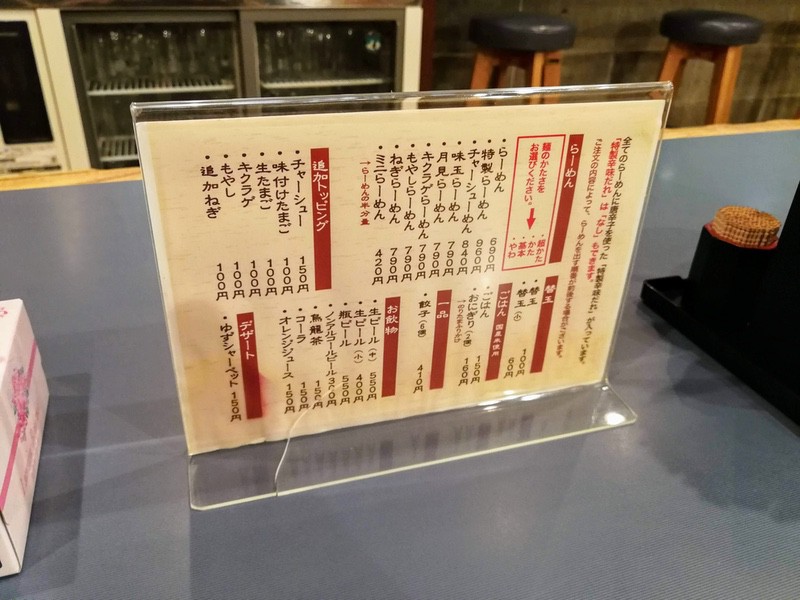 全てのらーめんに唐辛子を使った「特製辛味だれ」が入っています。
「特製辛味だれ」は「なし」もできます。
ご注文の内容によって、らーめんを出す順番が前後する場合がございます。
らーめん
麺のかたさを
お選びください。
・細かた
・かた
・基本
・やわ
・らーめん 690円
・特製らーめん 960円
・チャーシューめん 840円
・味玉らーめん 790円
・月見らーめん 790円
・キクラゲらーめん 790円
・もやしらーめん 790円
・ねぎらーめん 790円
・ミニらーめん 420円
→らーめんの半分量
追加トッピング
・チャーシュー 150円
・味付けたまご 100円
・生たまご 100円
・キクラゲ 100円
・もやし 100円
・追加ねぎ 100円
替玉
・替玉 100円
・替玉(小) 60円
ごはん 国産米使用
・ごはん 150円
・おにぎり(2個) 160円
→のりたまふりかけ
一品
・餃子(6個) 410円
お飲物
・生ビール(中) 550円
・生ビール(小) 400円
・瓶ビール 550円
・ノンアルコールビール
・烏龍茶 150円
・コーラ 150円
・オレンジジュース 150円
デザート
・ゆずシャーベット 150円